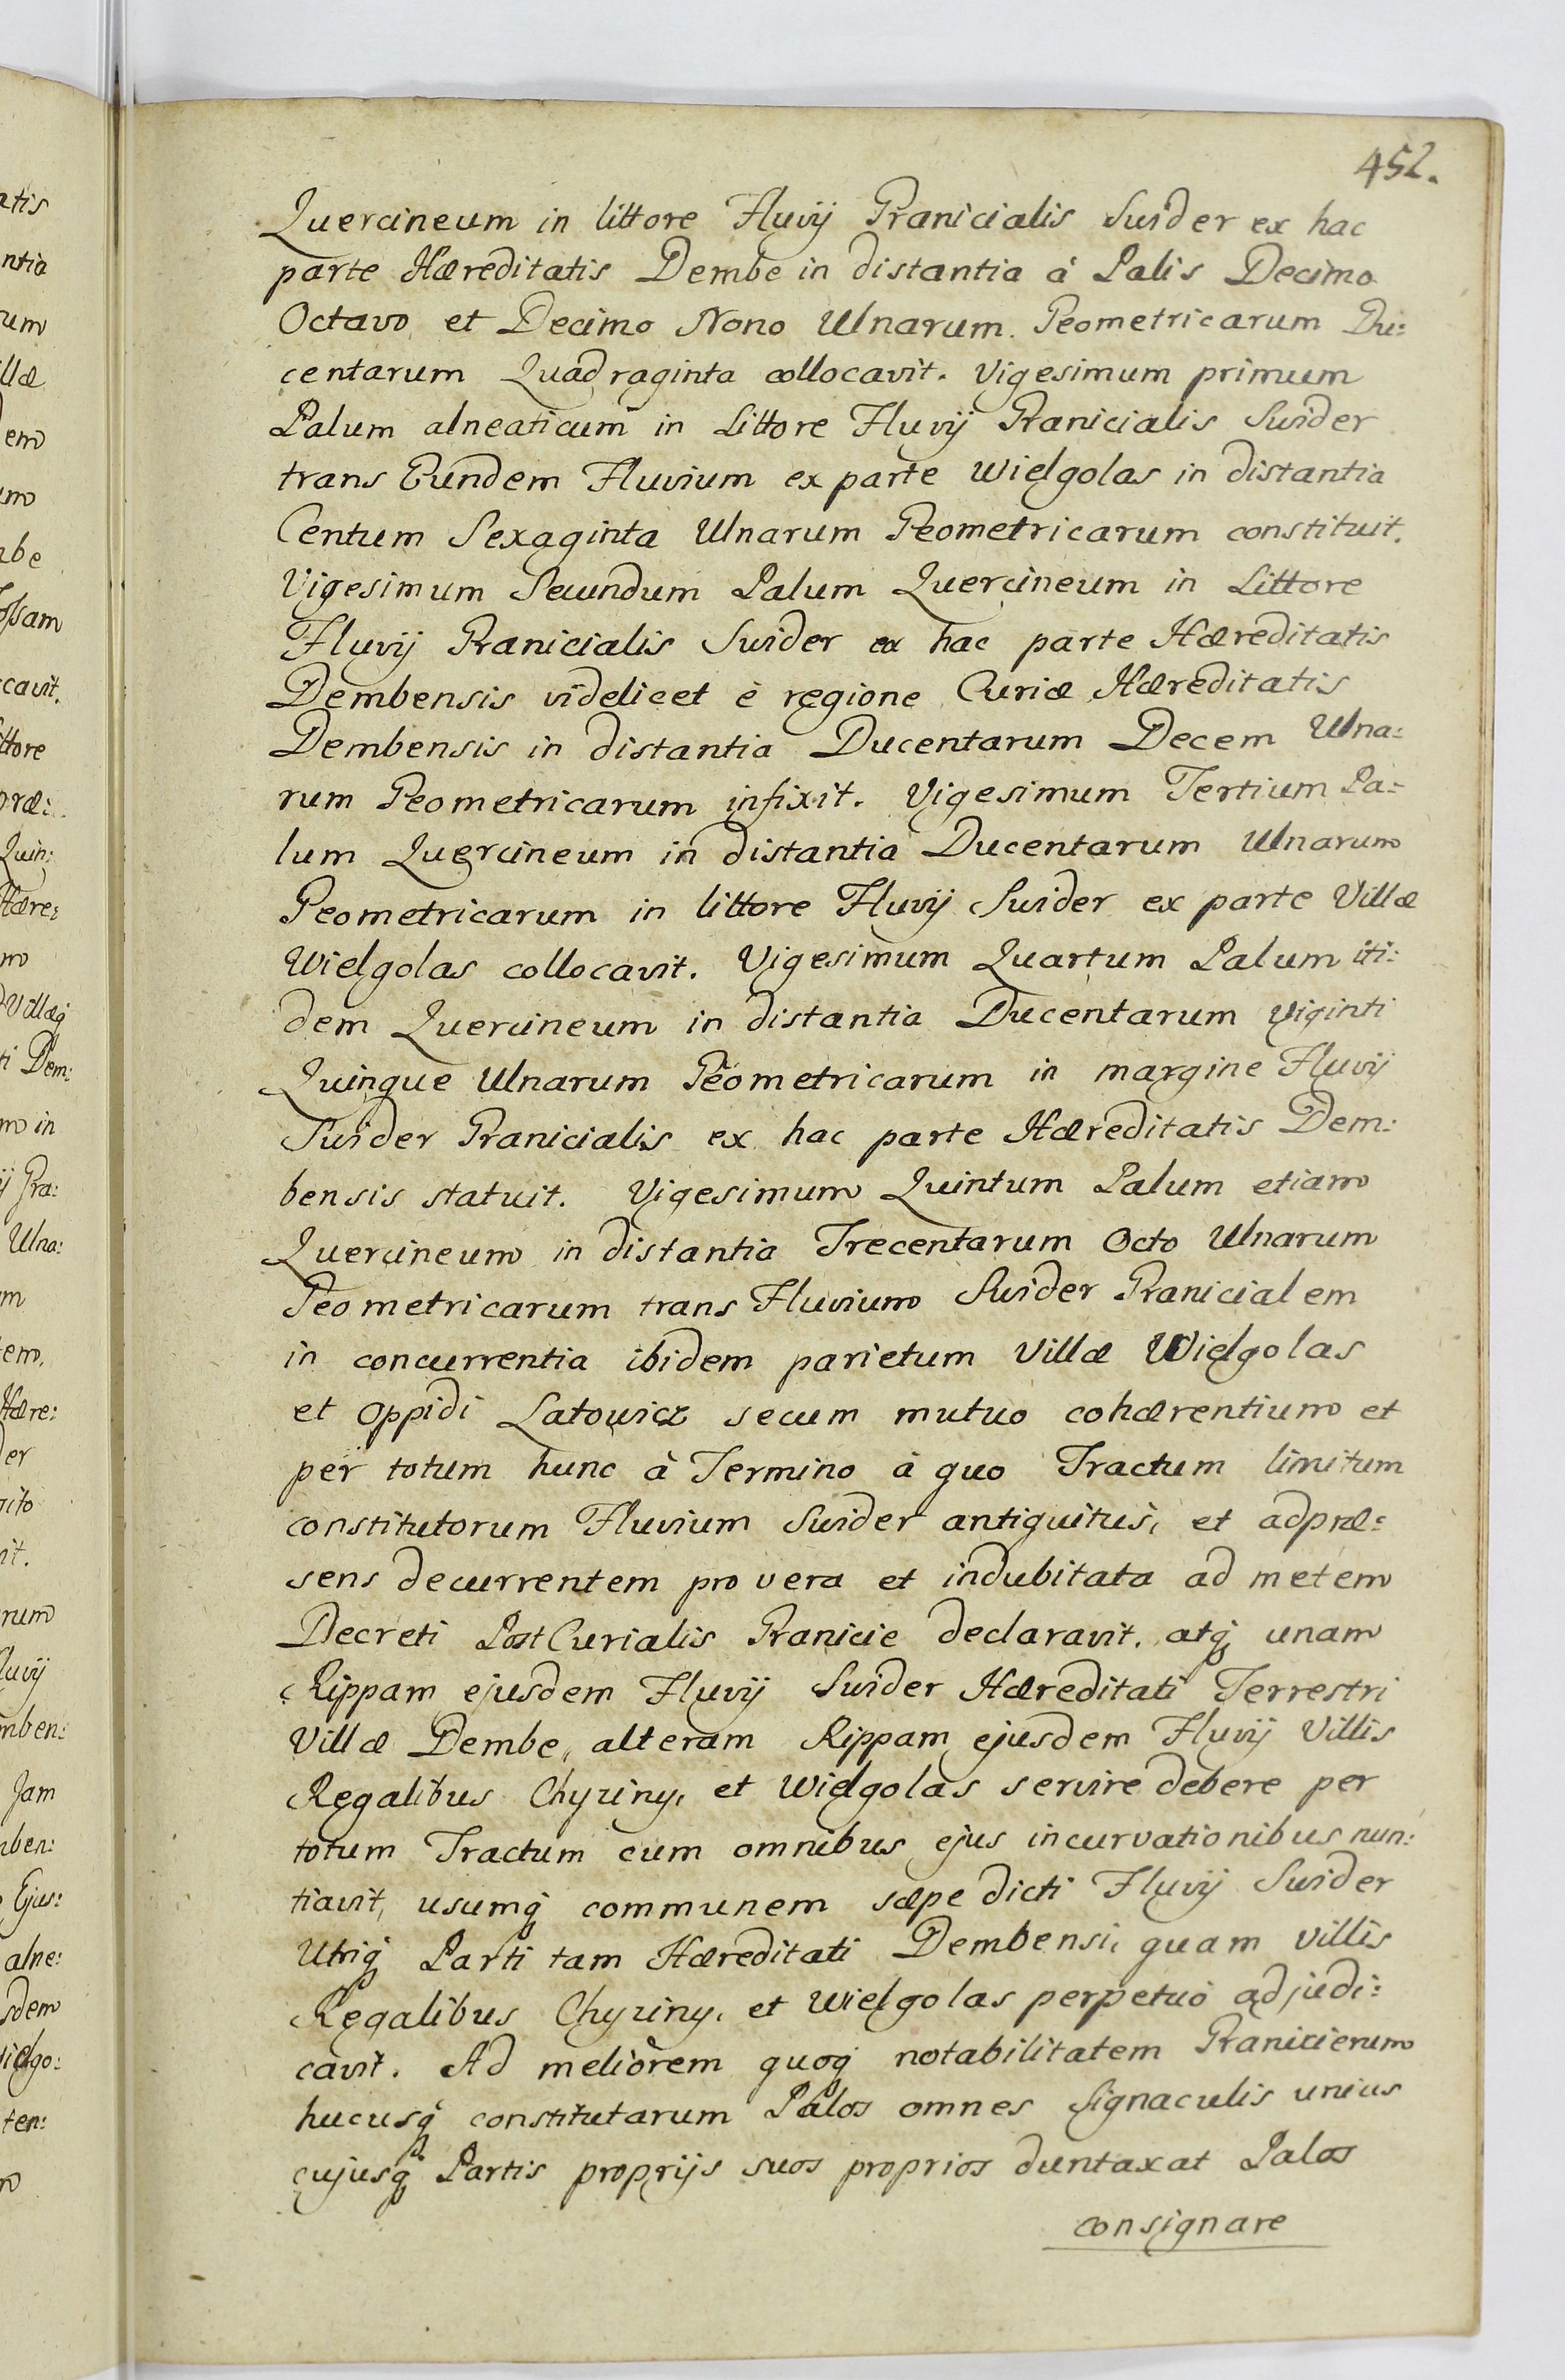 452.
Quercineum in littore Fluvij Granicialis Swider ex hac
parte Hæreditatis Dembe in distantia à Palis Decimo
Octavo et Decimo Nono Ulnarum Geometricarum Du:
centarum Quadraginta collocavit. Vigesimum primum
Palum alneaticum in Littore Fluvij Granicialis Swider
trans Eundem Fluvium ex parte Wielgolas in distantia
Centum Sexaginta Ulnarum Geometricarum constituit.
Vigesimum Secundum Palum Quercineum in Littore
Fluvij Granicialis Swider ex hac parte Hæreditatis
Dembensis videlicet è regione Curiæ Hæreditatis
Dembensis in distantia Ducentarum Decem Ulna:
rum Geometricarum infixit. Vigesimum Tertium Pa:
lum Quercineum in distantia Ducentarum Ulnarum
Geometricarum in littore Fluvij Swider ex parte Villæ
Wielgolas collocavit. Vigesimum Quartum Palum iti:
dem Quercineum in distantia Ducentarum Viginti
Quinque Ulnarum Geometricarum in margine Fluvij
Swider Granicialis ex hac parte Hæreditatis Dem:
bensis statuit. Vigesimum Quintum Palum etiam
Quercineum in distantia Trecentarum Octo Ulnarum
Geometricarum trans Fluvium Swider Granicialem
in concurrentia ibidem parietum Villæ Wielgolas
et Oppidi Latowicz secum mutuo cohærentium et
per totum hunc à Termino à quo Tractum limitum
constitutorum Fluvium Swider antiquitus, et adpræ:
sens decurrentem pro vera et indubitata ad metem
Decreti PostCurialis Granicie declaravit. atq unam
Rippam ejusdem Fluvij Swider Hæreditati Terrestri
Villæ Dembe, alteram Rippam ejusdem Fluvij Villis
Regalibus Chyziny, et Wielgolas servire debere per
totum Tractum cum omnibus ejus incurvationibus nun:
tiavit, usumq communem sæpe dicti Fluvij Swider
Utriq Parti tam Hæreditati Dembensi, quam Villis
Regalibus Chyziny, et Wielgolas perpetuò adjudi:
cavit. Ad meliorem quoq notabilitatem Granicierum
hucusq constitutarum Palos omnes Signaculis unius
cujusq Partis proprijs suos proprios duntaxat Palos
consignare